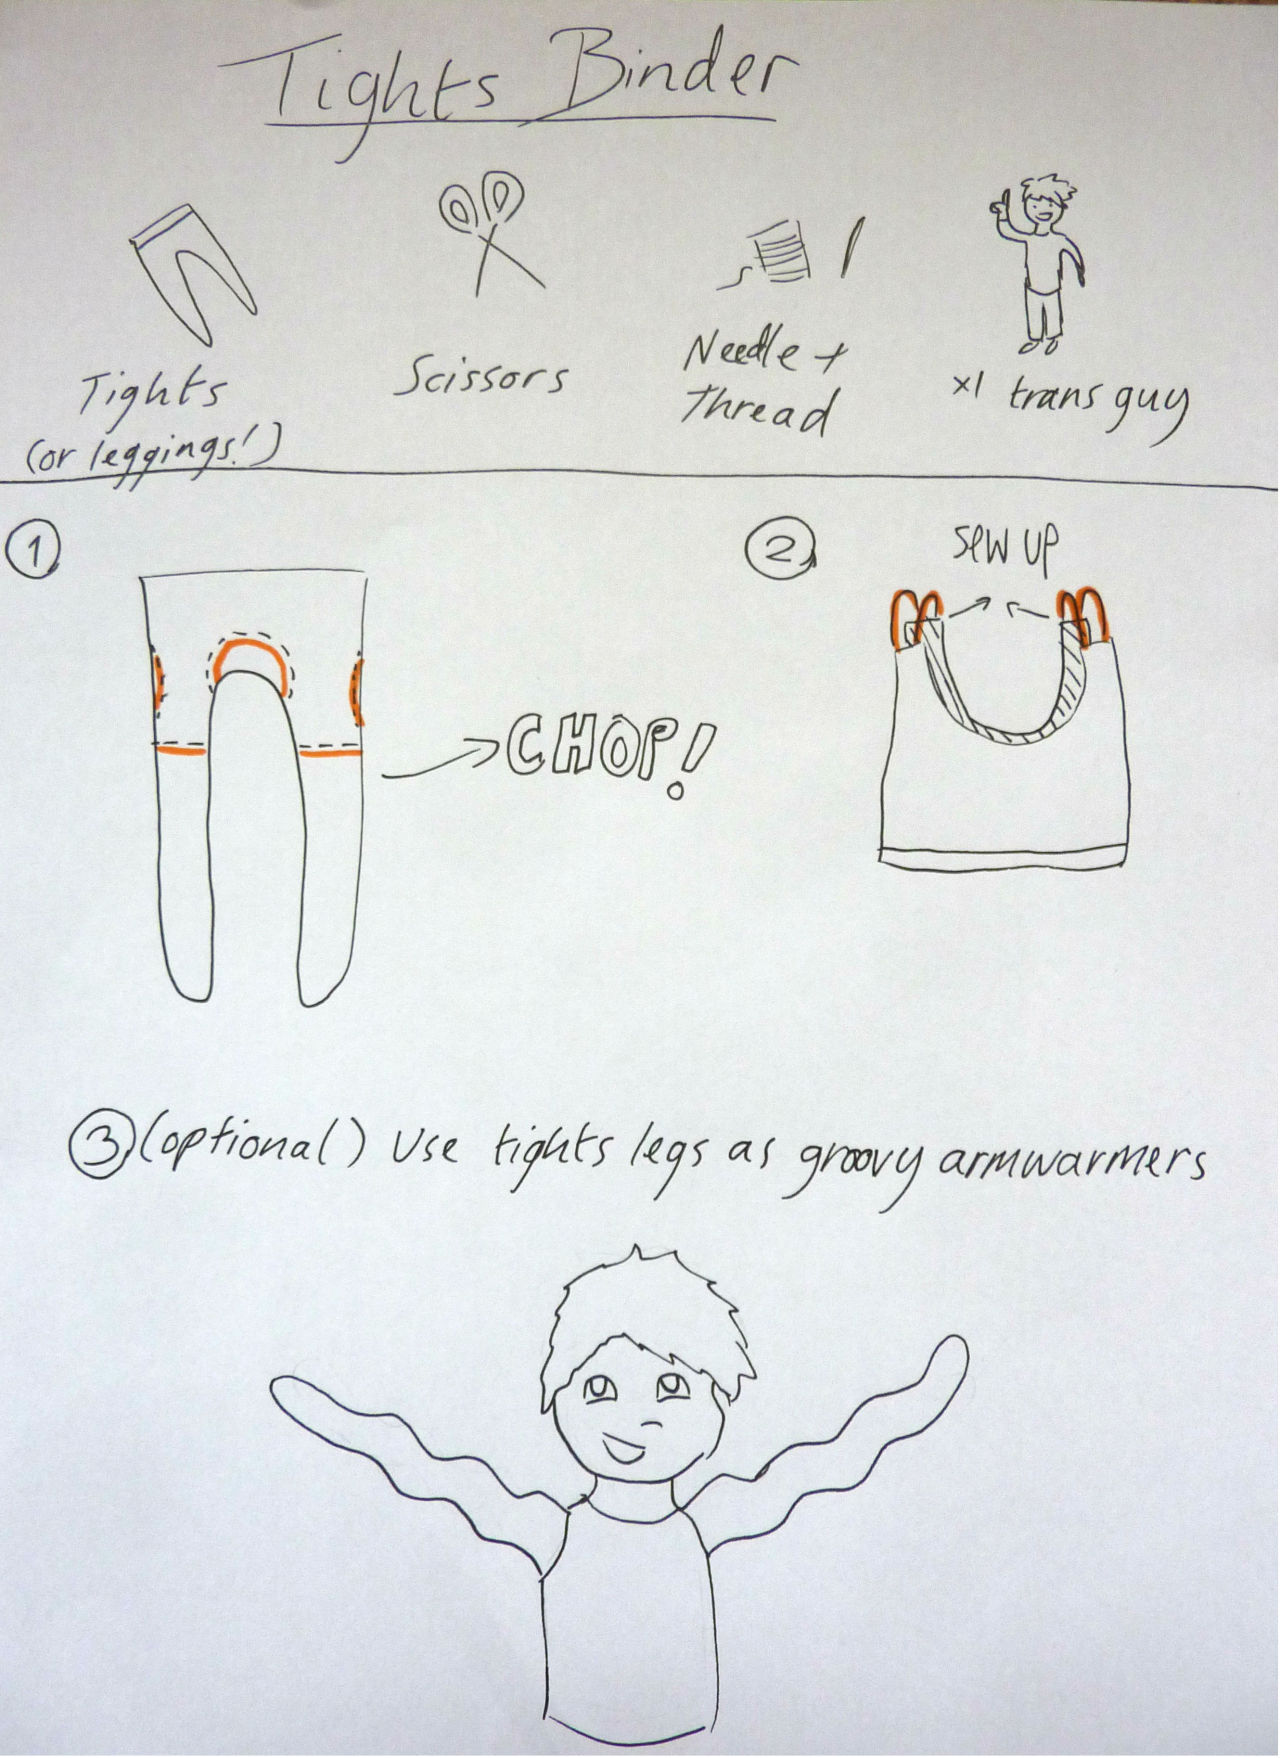 Tights Binder
Tights
(or leggings!)
Scissors
Needle +
Thread
x1 trans guy
1
CHOP!
2
sew up
3 (optional) Use tights legs as groovy armwarmers